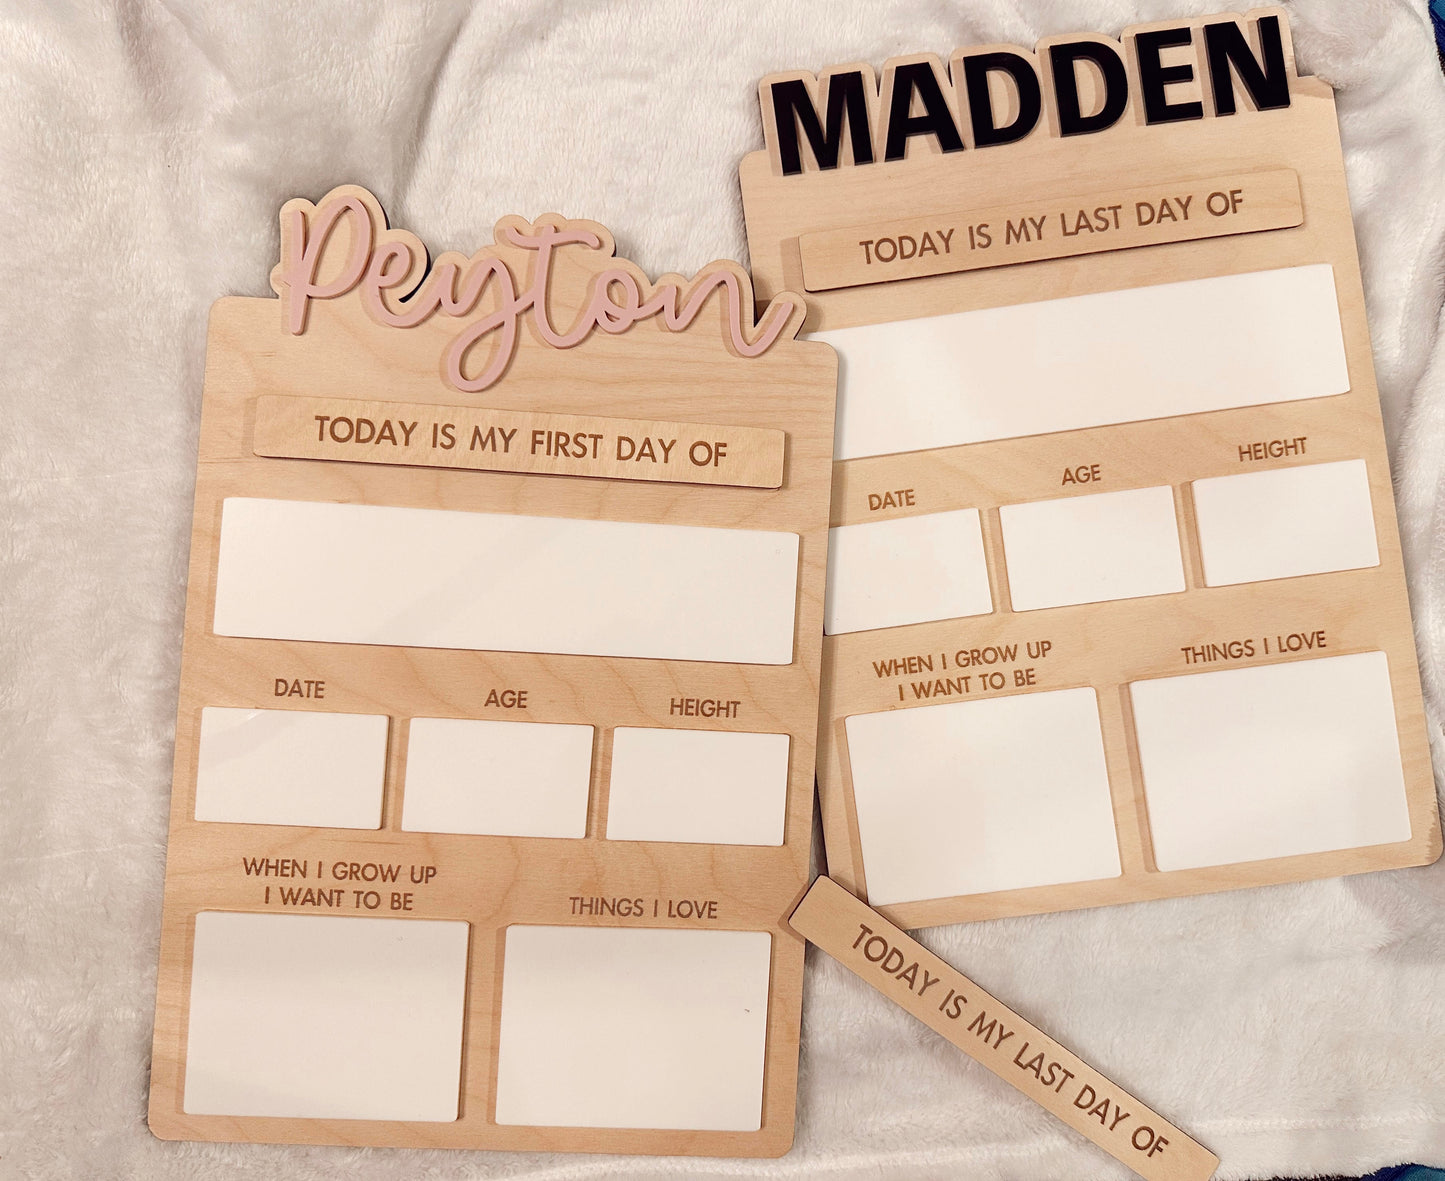 Peyton
TODAY IS MY FIRST DAY OF
DATE
AGE
HEIGHT
WHEN I GROW UP
I WANT TO BE
THINGS I LOVE
MADDEN
TODAY IS MY LAST DAY OF
DATE
AGE
HEIGHT
WHEN I GROW UP
I WANT TO BE
THINGS I LOVE
TODAY IS MY LAST DAY OF